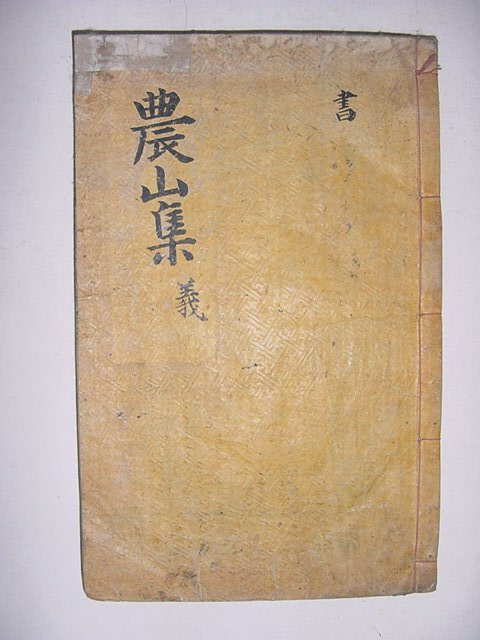 書
農山集 義